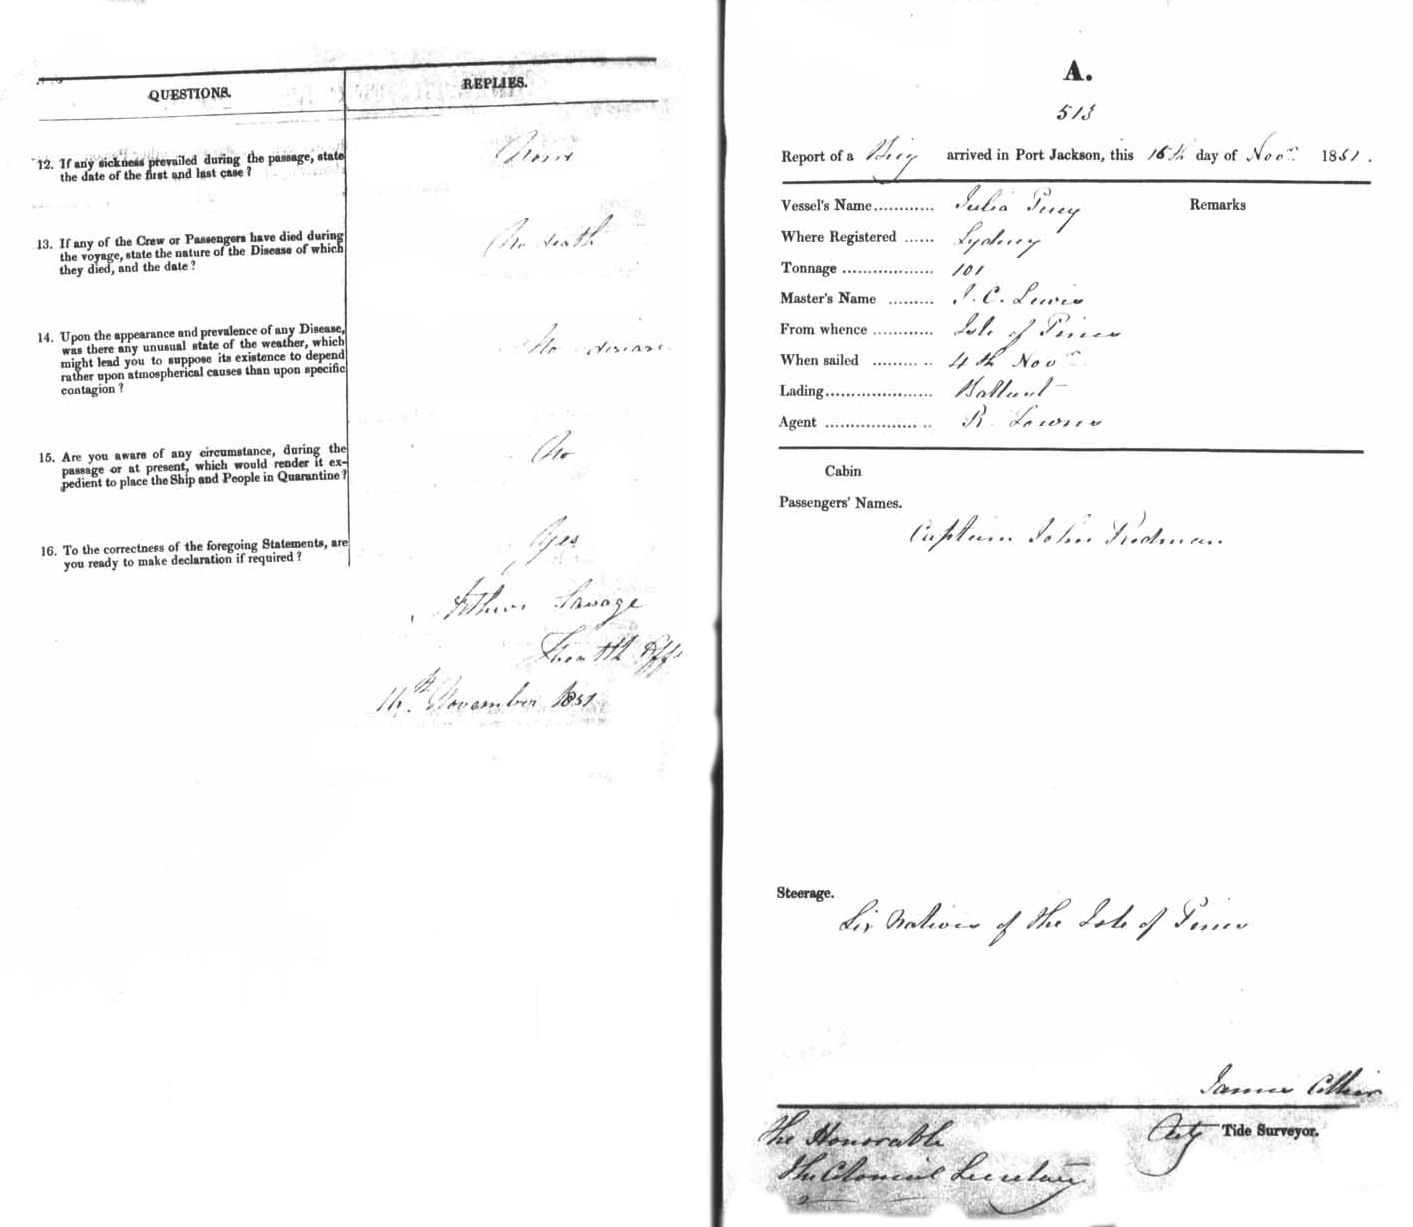 QUESTIONS.
REPLIES.
12. If any sickness prevailed during the passage, state
the date of the first and last case?
None
13. If any of the Crew or Passengers have died during
the voyage, state the nature of the Disease of which
they died, and the date?
No death
14. Upon the appearance and prevalence of any Disease,
was there any unusual state of the weather, which
might lead you to suppose its existence to depend
rather upon atmospherical causes than upon specific
contagion?
No disease
15. Are you aware of any circumstance, during the
passage or at present, which would render it ex-
pedient to place the Ship and People in Quarantine?
No
16. To the correctness of the foregoing Statements, are
you ready to make declaration if required?
Yes
Arthur Savage
16th November 1851
A.
513
Report of a Brig arrived in Port Jackson, this 15th day of Novr 1851.
Vessel's Name............ Julia Percy
Remarks
Where Registered ...... Sydney
Tonnage .................. 101
Master's Name ......... J. C. Lewis
From whence ............ Isle of Pines
When sailed ......... .. 4th Novr
Lading...................... Ballast
Agent .................. .. R. Towns
Cabin
Passengers' Names.
Captain John Redman
Steerage.
Six Natives of the Isle of Pines
James
Actg Tide Surveyor.
The Honorable
The Colonial Secretary